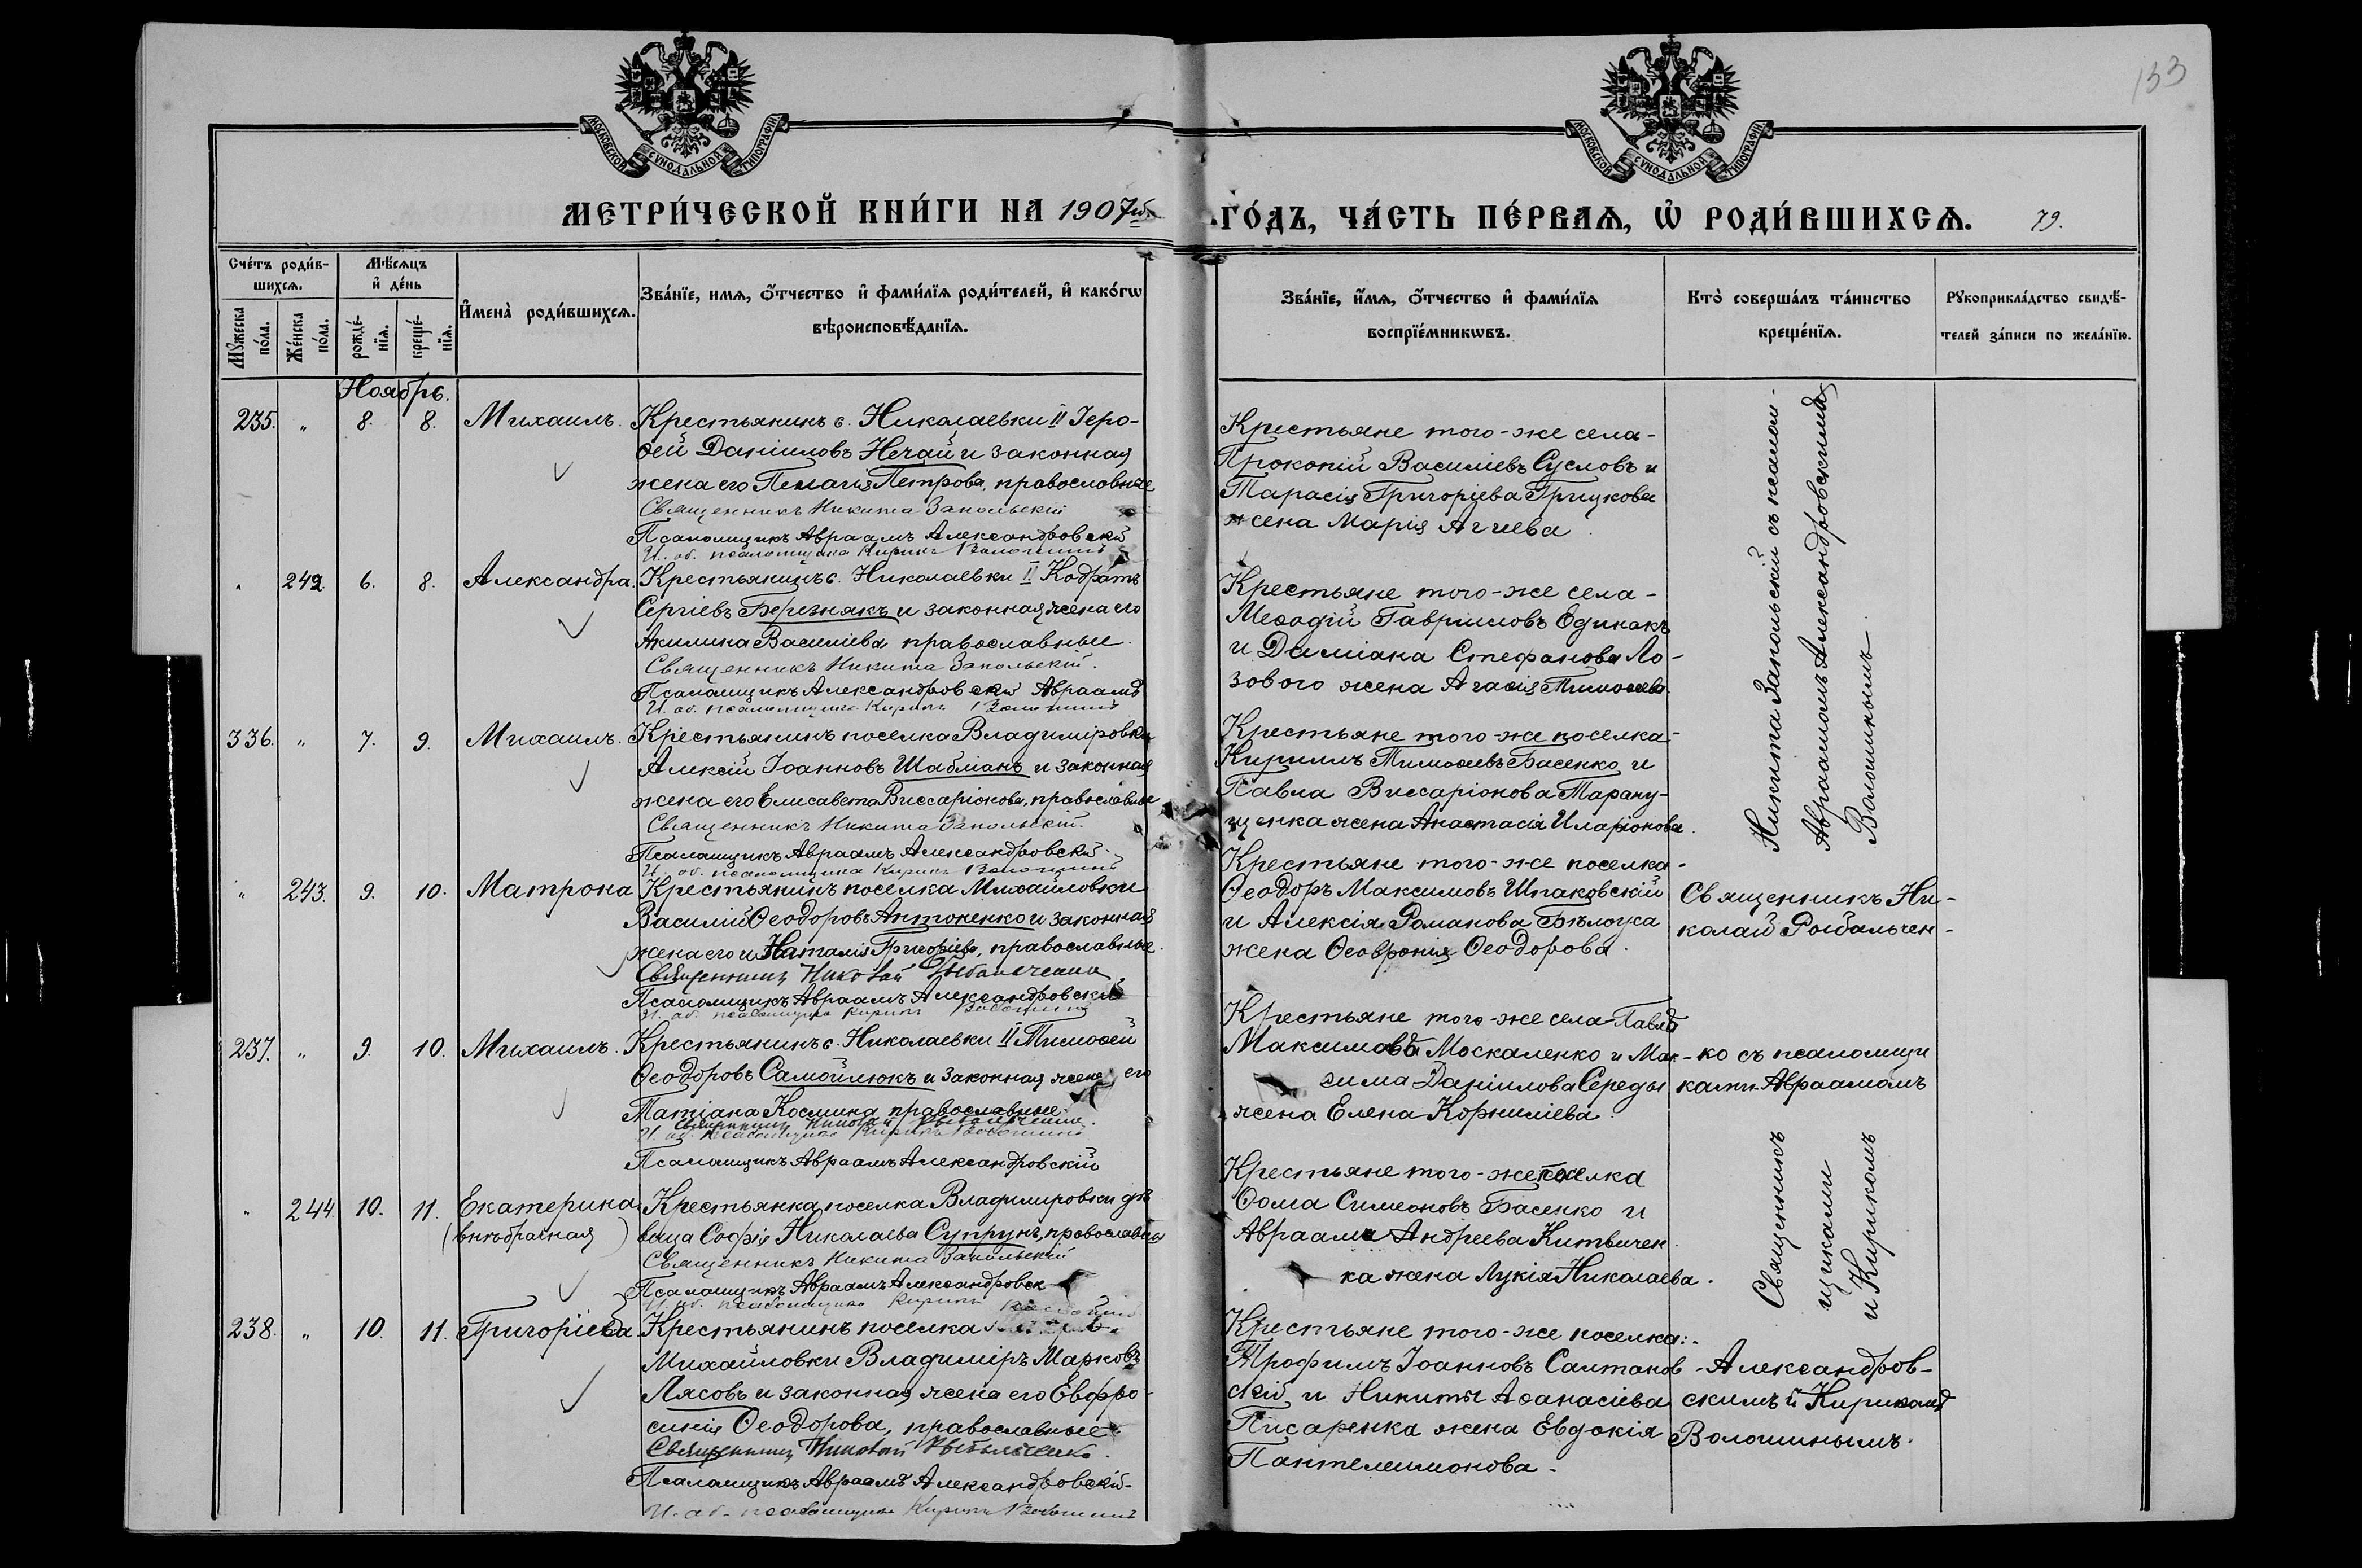 МОСКОВСКОЙ СѴНОДАЛЬНОЙ ТИПОГРАФІИ
МОСКОВСКОЙ СѴНОДАЛЬНОЙ ТИПОГРАФІИ
133
МЕТРИ́ЧЕСКОЙ КНИ́ГИ НА 1907й
ГО́ДЪ, ЧА́СТЬ ПЕ́РВАѦ, Ѡ҆ РОДИ́ВШИХСѦ.
79.
Сче́тъ роди́в-
шихсѧ.
Мѣ́сѧцъ
и҆ де́нь
Мꙋ́жеска
по́ла.
Же́нска
по́ла.
рожде́-
нїѧ.
креще́-
нїѧ.
И҆мена̀ роди́вшихсѧ.
Зва́нїе, имѧ, ѻ҆́тчество и҆ фами́лїѧ роди́телей, и҆ како́гѡ
вѣроисповѣ́данїѧ.
Зва́нїе, и҆́мѧ, ѻ҆́тчество и҆ фами́лїѧ
воспрїе́мникѡвъ.
Кто̀ соверша́лъ та́инство
креще́нїѧ.
Рꙋкоприкла́дство свидѣ́-
телей за́писи по жела́нїю.
Ноябрь.
235. " 8. 8. Михаилъ.
Крестьянинъ с. Николаевки II Іеро-
ѳей Даніиловъ Нечай и законная
жена его Пелагія Петрова, православные
Священникъ Никита Запольскій
Псаломщикъ Авраамъ Александровскій
И. об. псаломщика Кирикъ Волошинъ
Крестьяне того-же села-
Прокопій Василіевъ Сусловъ и
Тарасія Григоріева Грицкова
жена Марія
" 242. 6. 8. Александра.
Крестьянинъ с. Николаевки II Кодратъ
Сергіевъ Березнякъ и законная жена его
Акилина Василіева православные.
Священникъ Никита Запольскій.
Псаломщикъ Александровскій Авраамъ
И. об. псаломщика Кирикъ Волошинъ
Крестьяне того-же села-
Меѳодій Гавріиловъ Единакъ
и Даміана Стефанова Ло-
зового жена Агаѳія Тимоѳеева.
336. " 7. 9. Михаилъ.
Крестьянинъ поселка Владиміровки
Алексій Іоанновъ Шабліанъ и законная
жена его Елисавета Виссаріонова, православные
Священникъ Никита Запольскій.
Псаломщикъ Авраамъ Александровскій.
И. об. псаломщика Кирикъ Волошинъ
Крестьяне того-же поселка-
Кириллъ Тимоѳеевъ Басенко и
Павла Виссаріонова Тарану-
щенка жена Анастасія Иларіонова.
Никита Запольскій съ псалом-
Авраамомъ Александровскимъ
Волошинымъ.
" 243. 9. 10. Матрона
Крестьянинъ поселка Михайловки
Василій Ѳеодоровъ Антоненко и законная
жена его и Наталія Григоріева, православные.
Священникъ Николай Рыбальченко
Псаломщикъ Авраамъ Александровскій
И. об. псаломщика Кирикъ Волошинъ
Крестьяне того-же поселка-
Ѳеодоръ Максимовъ Шпаковскій
и Алексія Романова Бѣлоуса
жена Ѳеовронія Ѳеодорова.
Священникъ Ни-
колай Рыбальчен-
237. " 9. 10. Михаилъ.
Крестьянинъ с. Николаевки II Тимоѳей
Ѳеодоровъ Самойлюкъ и законная жена его
Татіана Космина православные.
Священникъ Николай Рыбальченко.
И. об. псаломщика Кирикъ Волошинъ
Псаломщикъ Авраамъ Александровскій
Крестьяне того-же села Павелъ
Максимовъ Москаленко и Мак-
сима Даніилова Середы
жена Елена Корниліева.
ко съ псаломщи
ками Авраамомъ
" 244. 10. 11. Екатерина
(внѣбрачная)
Крестьянка поселка Владиміровки дѣ
вица Софія Николаева Супрунъ, православная
Священникъ Никита Запольскій
Псаломщикъ Авраамъ Александровск
И. об. псаломщика Кирикъ
Крестьяне того-же поселка
Ѳома Симеоновъ Басенко и
Авраама Андреева Китвичен
ка жена Лукія Николаева.
Священникъ
щиками
и Кирикомъ
238. " 10. 11. Григорій
Крестьянинъ поселка
Михайловки Владиміръ Марковъ
Лясовъ и законная жена его Евфро-
синія Ѳеодорова, православные
Священникъ Николай Рыбальченко.
Псаломщикъ Авраамъ Александровскій-
И. об. псаломщика Кирикъ Волошинъ
Крестьяне того-же поселка:-
Трофимъ Іоанновъ Салтанов
скій и Никиты Аѳанасіева
Писаренка жена Евдокія
Пантелеимонова.
-Александров-
скимъ и Кирикомъ
Волошинымъ.